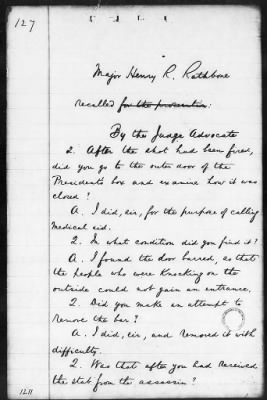 127
Major Henry R. Rathbone
recalled for the prosecution:
By the Judge Advocate
Q. After the shot had been fired,
did you go to the outer door of the
President's box and examine how it was
closed?
A. I did, sir, for the purpose of calling
medical aid.
Q. In what condition did you find it?
A. I found the door barred, so that
the people who were knocking on the
outside could not gain an entrance.
Q. Did you make an attempt to
remove the bar?
A. I did, sir, and removed it with
difficulty.
Q. Was that after you had received
the stab from the assassin?
1211